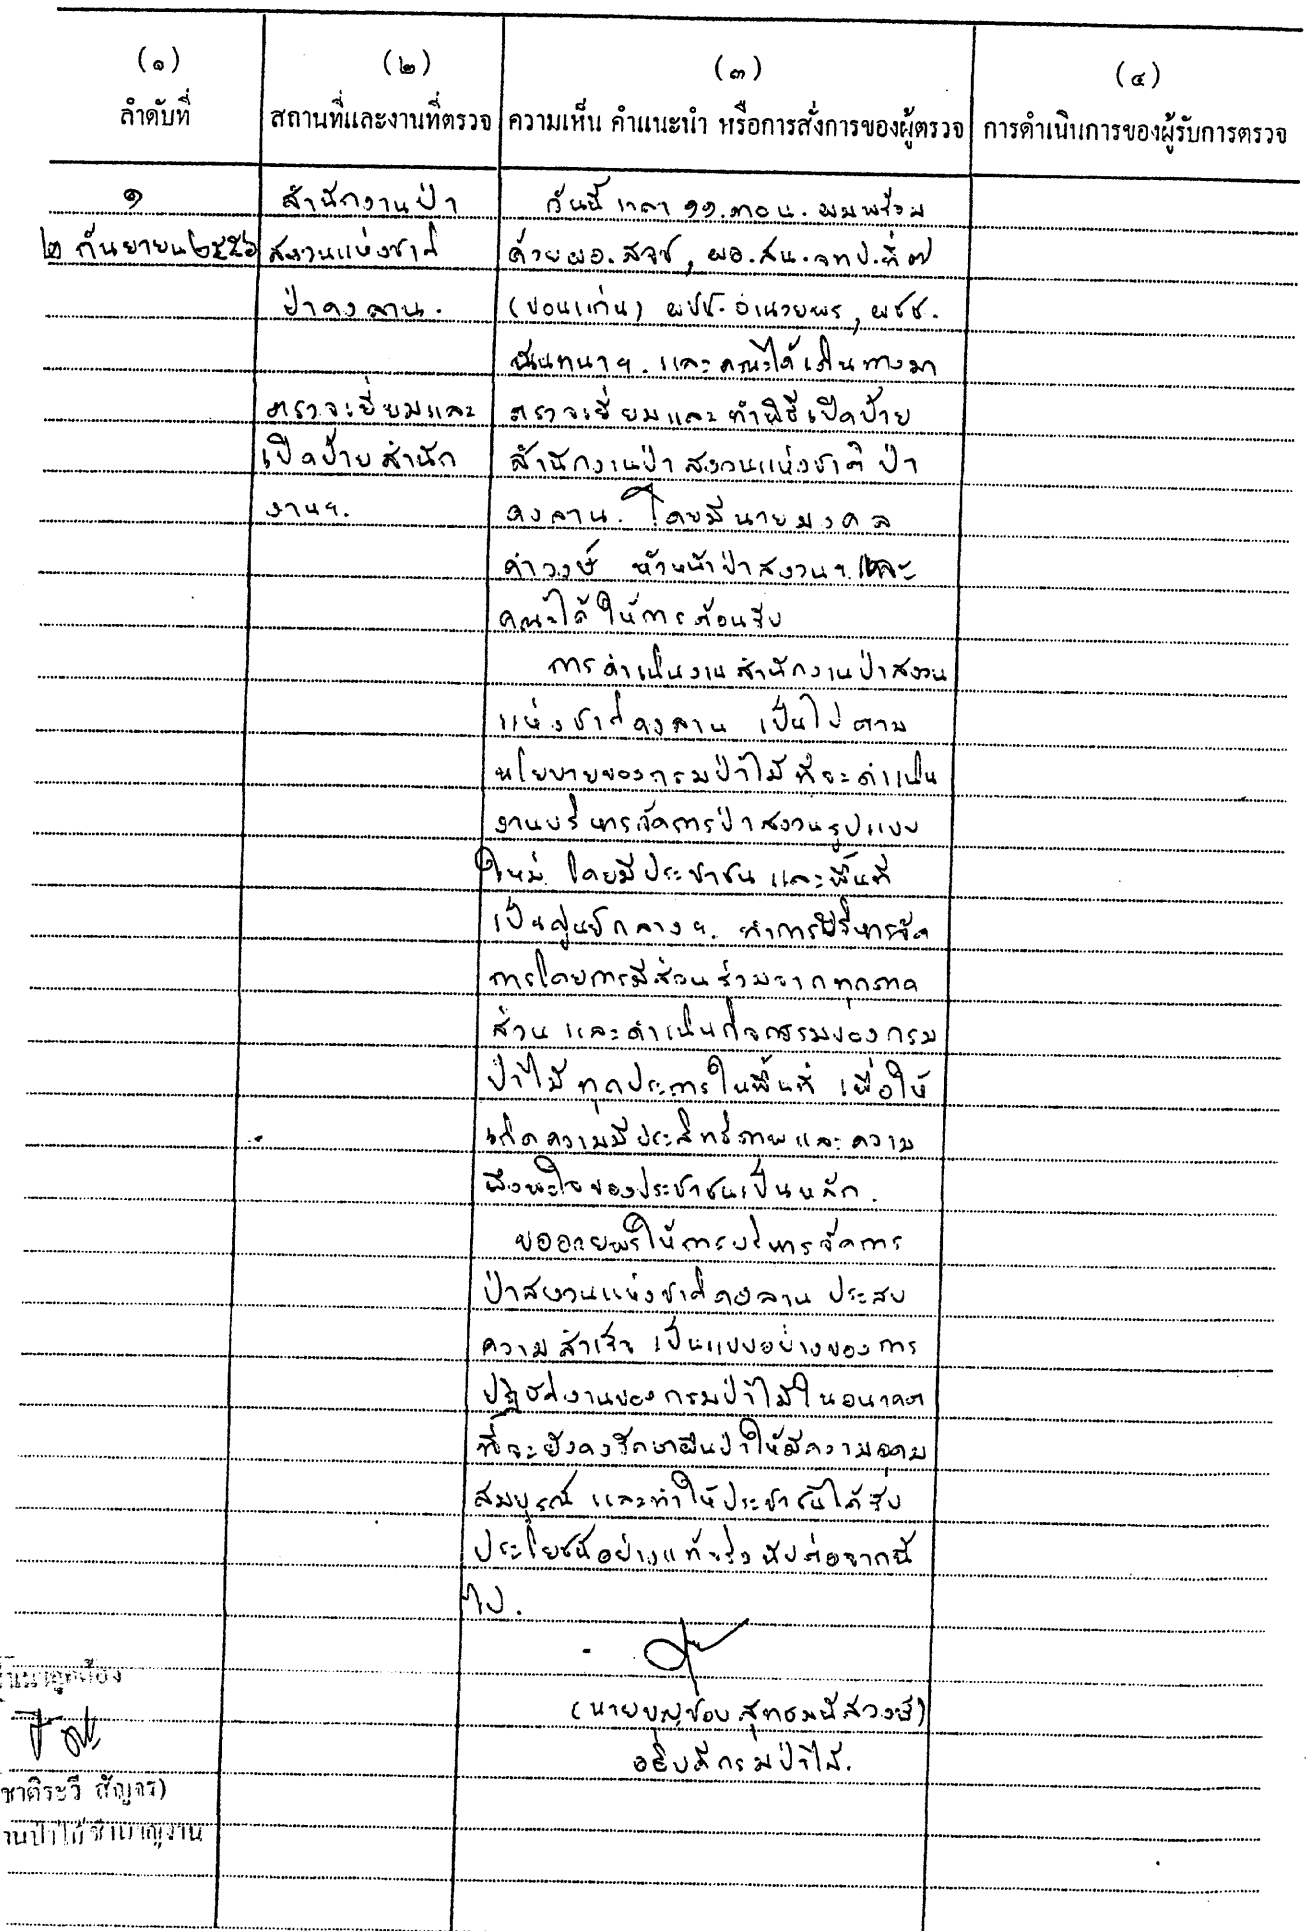 (๑) (๒) (๓) (๔)
ลำดับที่ สถานที่และงานที่ตรวจ ความเห็น คำแนะนำ หรือการสั่งการของผู้ตรวจ การดำเนินการของผู้รับการตรวจ
๑ สำนักงานป่า วันนี้ เวลา ๑๑.๓๐ น. ผมพร้อม
๒ กันยายน ๒๕๕๖ สงวนแห่งชาติ ด้วย ผอ.สจช, ผอ.สน.จทป.ที่ ๗
ป่าดงลาน. (ขอนแก่น) ผชช. อำนวยพร, ผชช.
นันทนาฯ. และคณะได้เดินทางมา
ตรวจเยี่ยมและ ตรวจเยี่ยมและทำพิธีเปิดป้าย
เปิดป้ายสำนัก สำนักงานป่าสงวนแห่งชาติ ป่า
งานฯ. ดงลาน. โดยมีนายมงคล
คำวงษ์ หัวหน้าป่าสงวนฯ. และ
คณะได้ให้การต้อนรับ
การดำเนินงานสำนักงานป่าสงวน
แห่งชาติดงลาน เป็นไปตาม
นโยบายของกรมป่าไม้ที่จะดำเนิน
งานบริหารจัดการป่าสงวนรูปแบบ
ใหม่ โดยมีประชาชน และพื้นที่
เป็นศูนย์กลางฯ. ทำการบริหารจัด
การโดยการมีส่วนร่วมจากทุกภาค
ส่วน และดำเนินกิจกรรมของกรม
ป่าไม้ทุกประการในพื้นที่ เพื่อให้
เกิดความมีประสิทธิภาพและความ
พึงพอใจของประชาชนเป็นหลัก.
ขออวยพรให้การบริหารจัดการ
ป่าสงวนแห่งชาติดงลาน ประสบ
ความสำเร็จ เป็นแบบอย่างของการ
ปฏิบัติงานของกรมป่าไม้ในอนาคต
ที่จะยังคงรักษาผืนป่าให้มีความอุดม
สมบูรณ์ และทำให้ประชาชนได้รับ
ประโยชน์อย่างแท้จริง นับต่อจากนี้
ไป.
(นายบุญชอบ สุทธมนัสวงษ์)
อธิบดีกรมป่าไม้.
ชาติระวี สัญจร)
านป่าไม้ชำนาญงาน